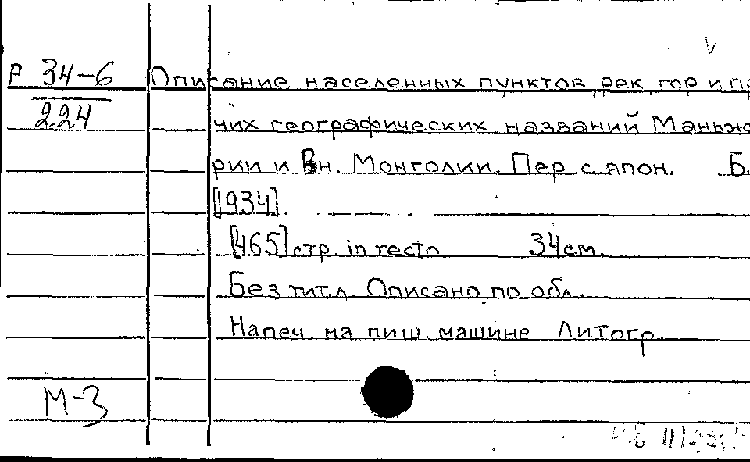 Р 34-6 Описание населенных пунктов, рек, гор и пр
224 чих географических названий Маньчжу
рии и Вн. Монголии. Пер с япон. Б.
[1934].
[465] стр. in recto 34 см.
Без тит. л. Описано по обл.
Напеч. на пиш. машине Литогр.
М-3